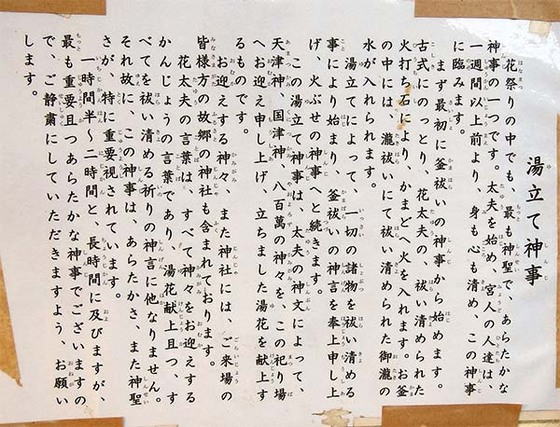 湯立て神事
花祭りの中でも、最も神聖で、あらたかな
神事の一つです。太夫を始め、宮人の人達は、
一週間以上前より、身も心も清め、この神事
に臨みます。
まず最初に釜祓いの神事から始めます。
古式にのっとり、花太夫の、祓い清められた
火打ち石により、かまどへ火を入れます。お釜
の中には、瀧祓いにて祓い清められた御瀧の
水が入れられます。
湯立てによって、一切の諸物を祓い清める
事により始まり、釜祓いの神言を奉上申し上
げ、火ぶせの神事へと続きます。
この湯立て神事は、太夫の神文によって、
天津神、国津神、八百萬の神々を、この祀り場
へお迎え申し上げ、立ちました湯花を献上す
るものです。
お迎えする神々、また神社には、ご来場の
皆様方の故郷の神社も含まれております。
花太夫の言葉は、すべて神々をお迎えする
かんじょうの言葉であり、湯花献上且つ、す
べてを祓い清める祈りの神言に他なりません。
それ故に、この神事は、あらたかさ、また神聖
さが、特に重要視されています。
一時間半～二時間と、長時間に及びますが、
最も重要且つあらたかな神事でございますの
で、ご静粛にしていただきますよう、お願い
します。